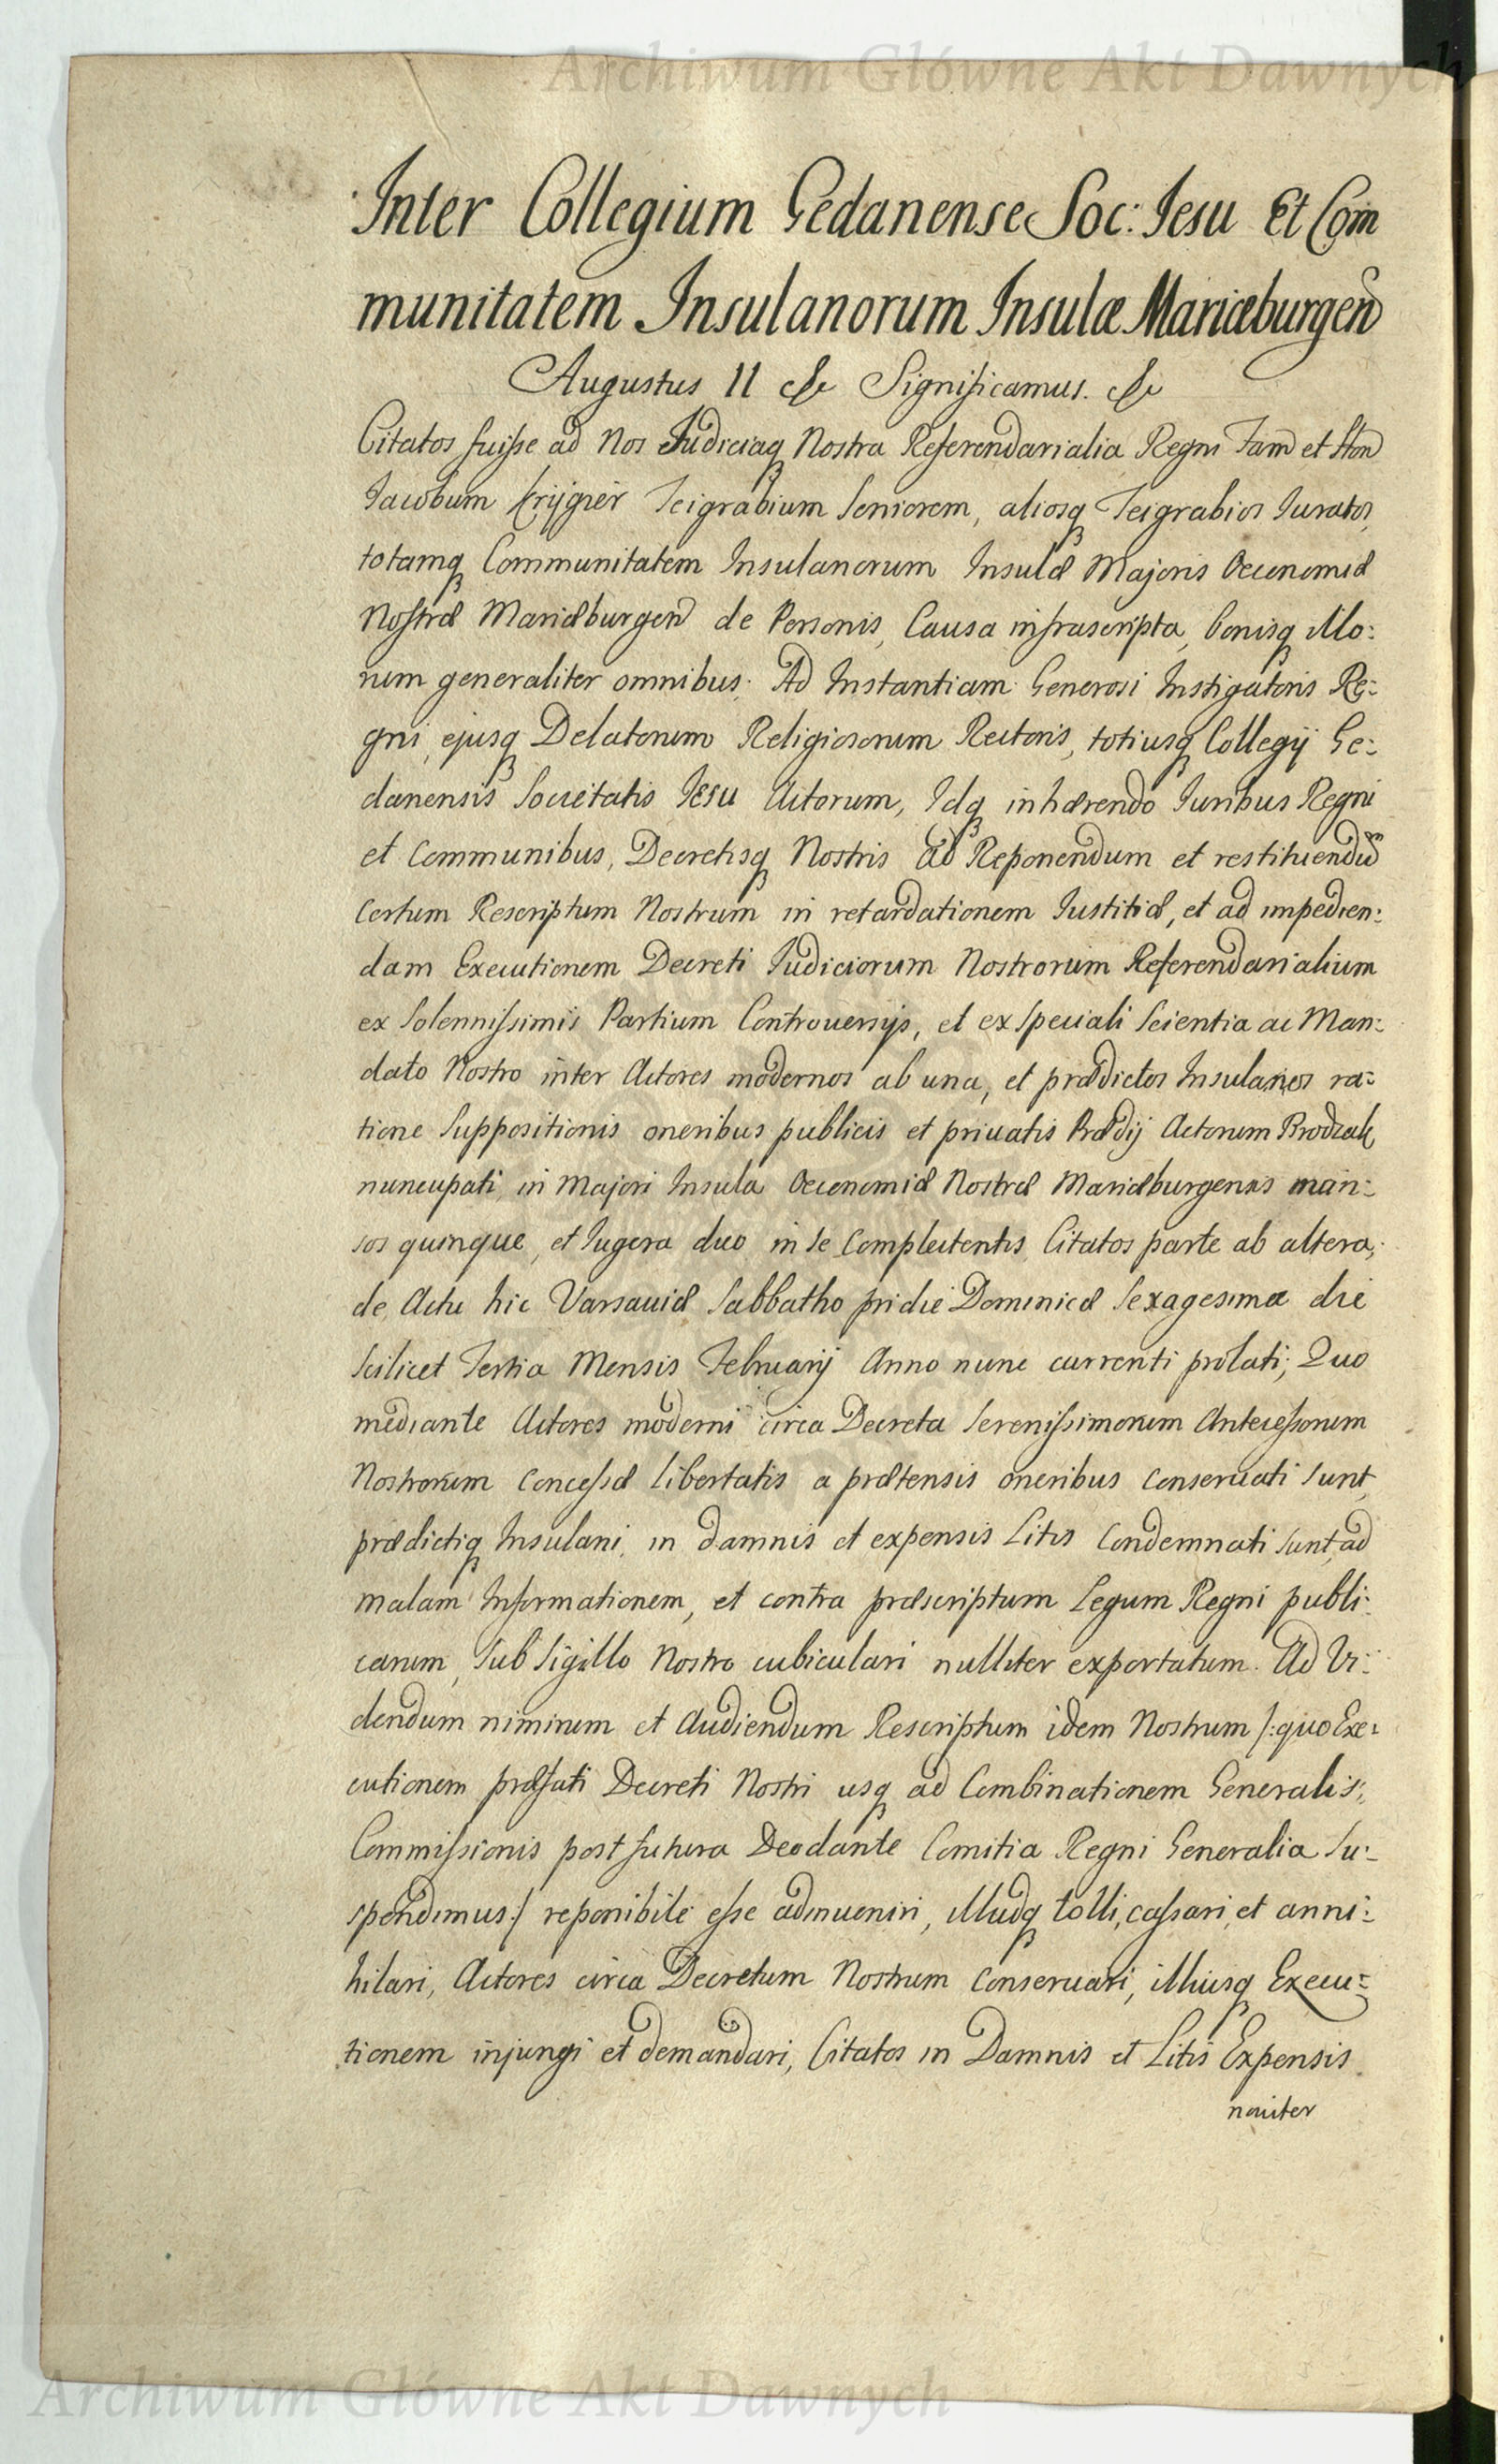 Archiwum Główne Akt Dawnych
Inter Collegium Gedanense Soc: Iesu Et Com
munitatem Insulanorum Insulæ Mariæburgen
Augustus II &c Significamus. &c
Citatos fuisse ad Nos Judiciaq Nostra Referendarialia Regni Fam et Hon
Iacobum Krÿgier Teigrabium Seniorem, aliosq Teigrabios Iuratos,
totamq Communitatem Insulanorum Insulæ Majoris Oeconomiæ
Nostræ Mariæburgen de Personis, Causa infrascripta, bonisq illo:
rum generaliter omnibus. Ad Instantiam Generosi Instigatoris Re:
gni, ejusq Delatorum Religiosorum Rectoris, totiusq Collegij Ge:
danensis Societatis Iesu Actorum, Idq inhærendo Iuribus Regni
et Communibus, Decretisq Nostris Ad Reponendum et restituendum
certum Rescriptum Nostrum in retardationem Iustitiæ, et ad impedien:
dam Executionem Decreti Iudiciorum Nostrorum Referendarialium
ex Solennissimis Partium Controversijs, et ex speciali Scientia ac Man:
dato Nostro inter Actores modernos ab una, et prædictos Insulanos ra:
tione Suppositionis oneribus publicis et privatis Prædij Actorum Brodzak
nuncupati, in Majori Insula Oeconomiæ Nostræ Mariæburgensis man:
sos quinque, et Iugera duo in se Complectentis, Citatos parte ab altera,
de Actu hic Varsaviæ Sabbatho pridie Dominicæ Sexagesimæ die
scilicet Tertia Mensis Februarij Anno nunc currenti prolati; Quo
mediante Actores moderni circa Decreta Serenissimorum Antecessorum
Nostrorum Concessæ libertatis a prætensis oneribus Conservati sunt,
prædictiq Insulani, in damnis et expensis Litis Condemnati sunt, ad
malam Informationem, et contra præscriptum Legum Regni publi:
carum, Sub Sigillo Nostro cubiculari nulliter exportatum. Ad Vi:
dendum nimirum et Audiendum Rescriptum idem Nostrum /:quo Exe:
cutionem præfati Decreti Nostri usq ad Combinationem Generalis
Commissionis post futura Deo dante Comitia Regni Generalia Su:
spendimus:/ reponibile esse adinveniri, illudq tolli, cassari, et anni:
hilari, Actores circa Decretum Nostrum Conservari, illiusq Execu:
tionem injungi et demandari, Citatos in Damnis et Litis Expensis
noviter
Archiwum Główne Akt Dawnych